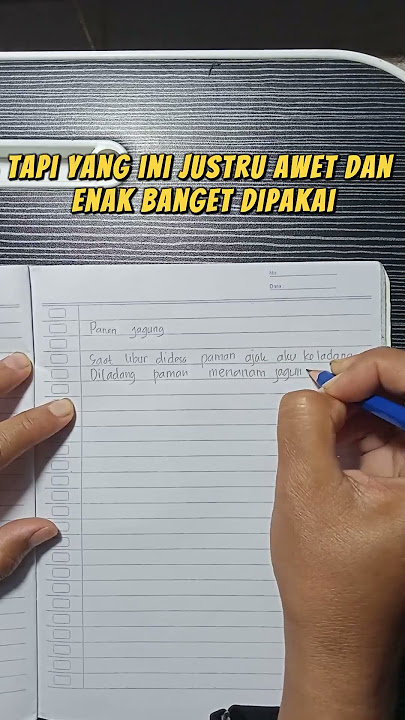 TAPI YANG INI JUSTRU AWET DAN
ENAK BANGET DIPAKAI
No.
Date.
Panen jagung
Saat libur didesa paman ajak aku keladang
Diladang paman menanam jagun